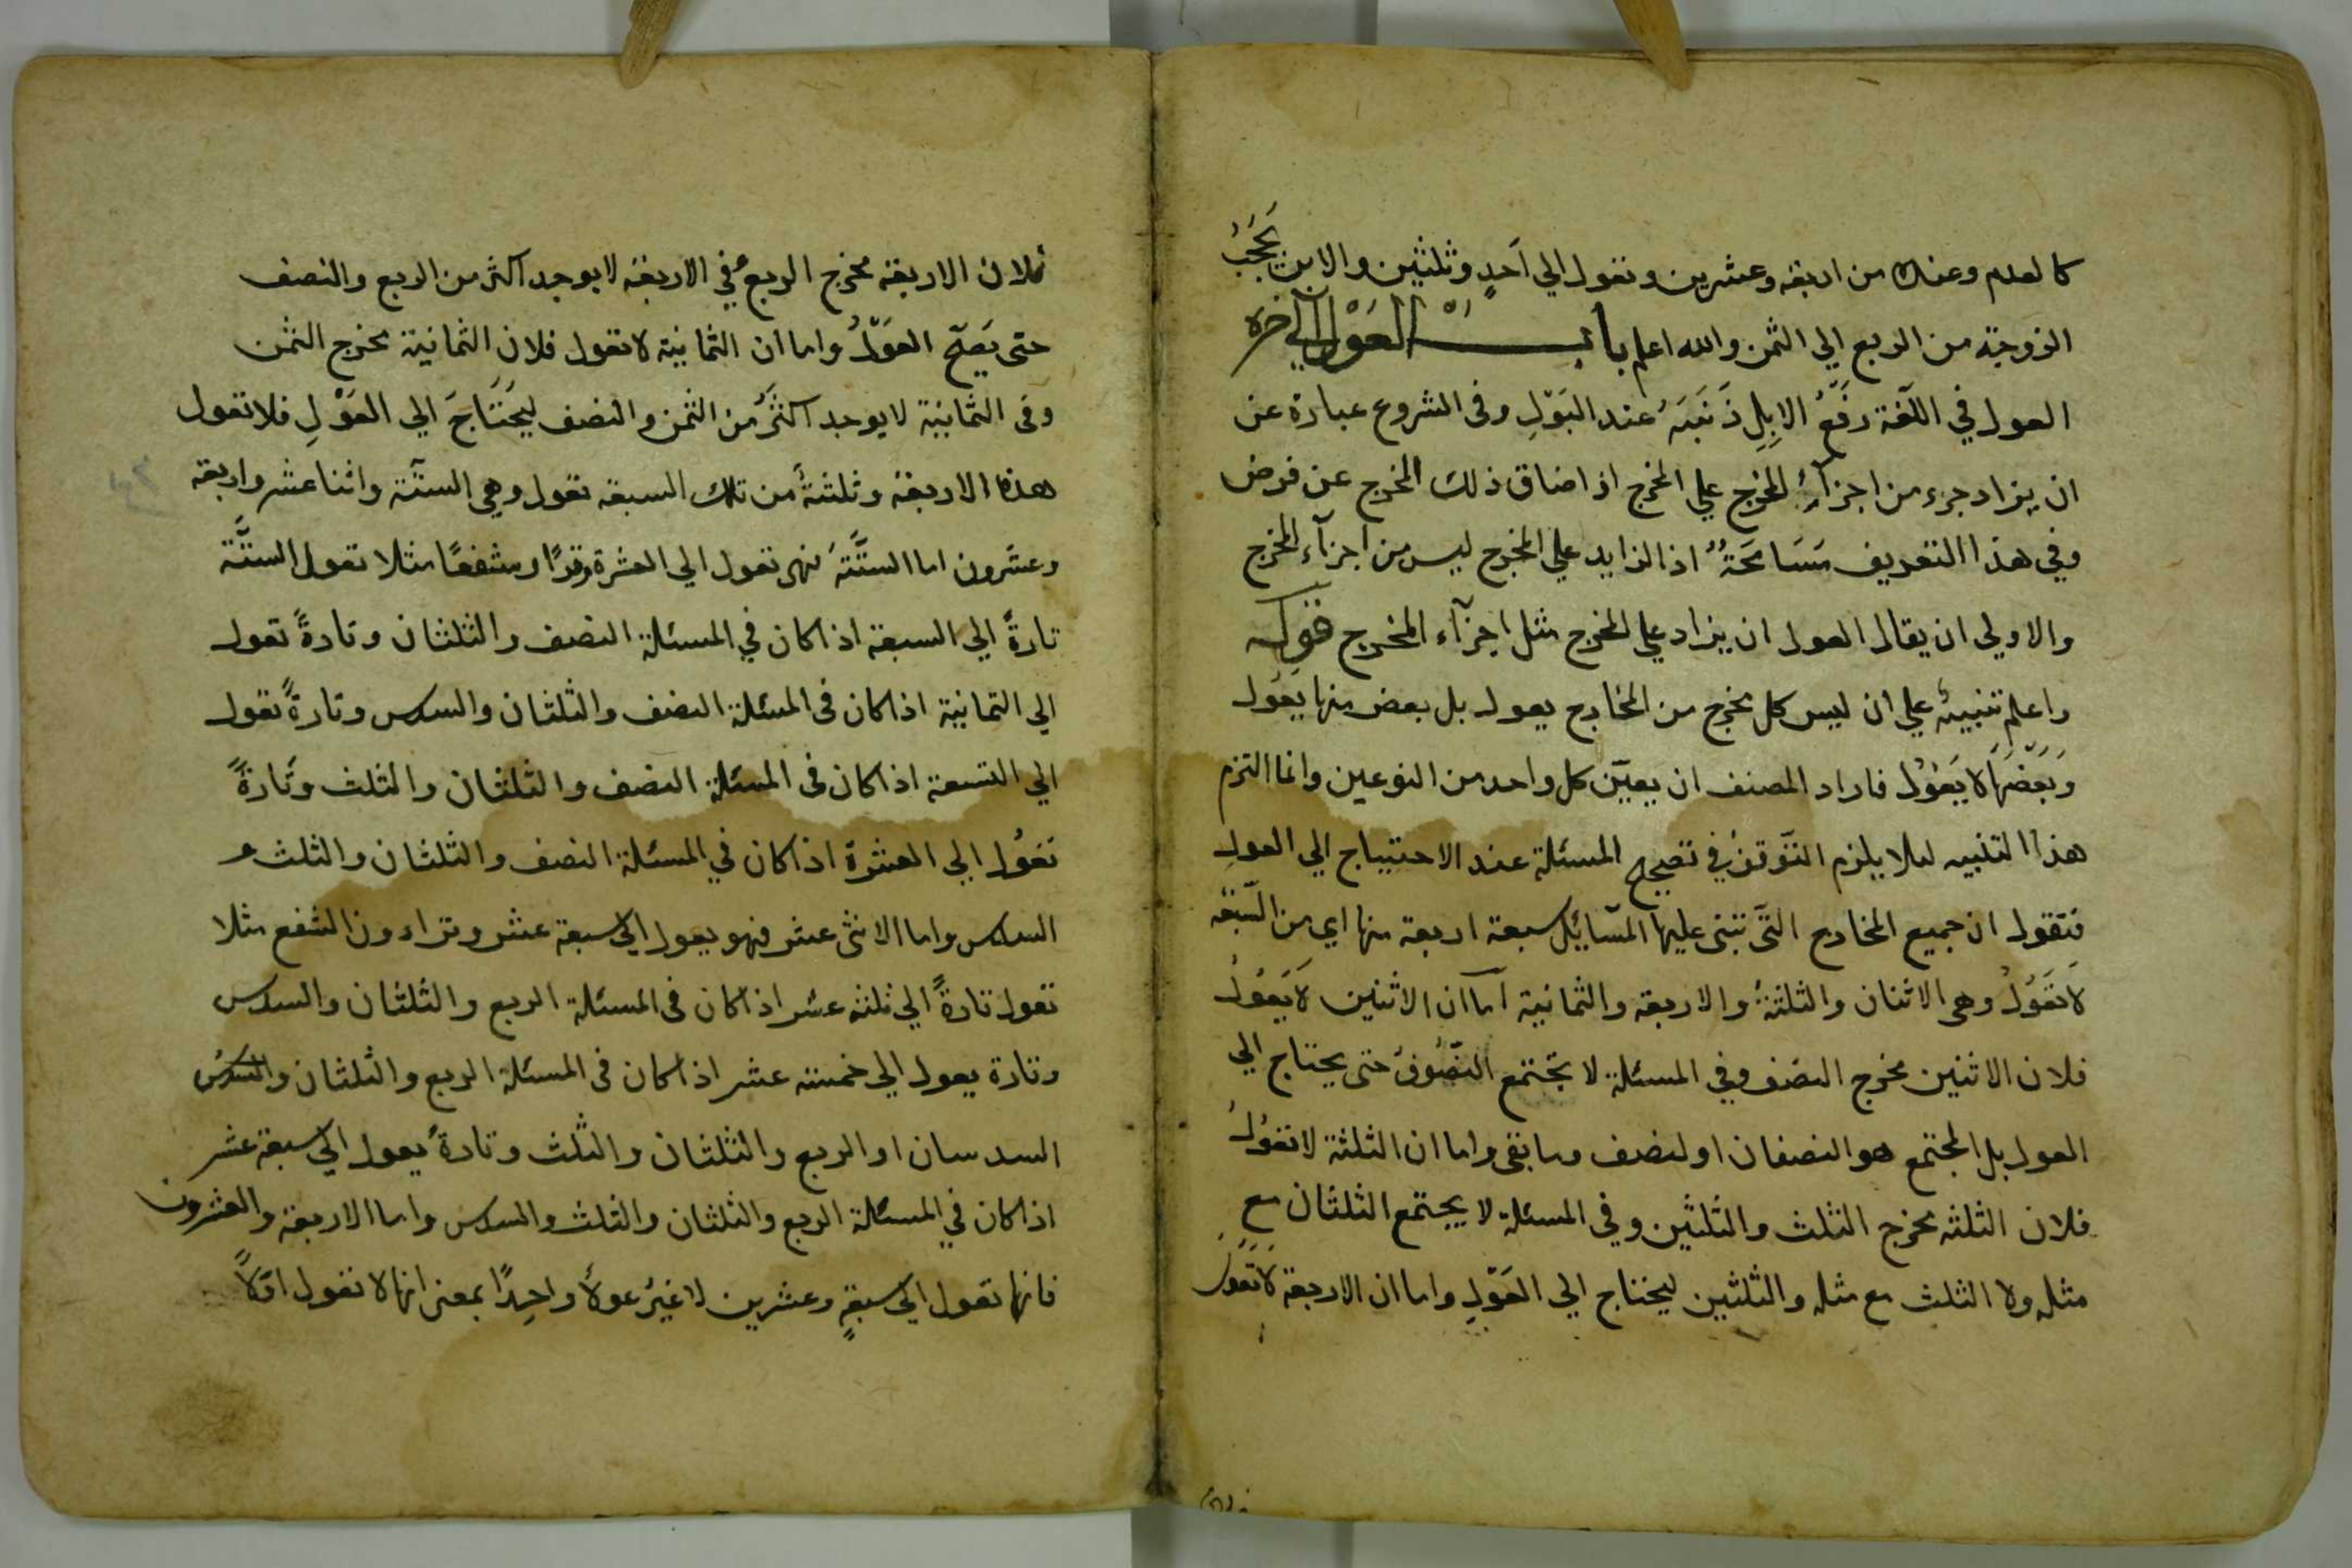 كالعدم وعنده من اربعة وعشرين وتعول الي احدٍ وثلثين والابن يَحْجُبُ
الزوجة من الربع الي الثمن والله اعلم بابُ العَوْل الي آخره
العول في اللّغة رفعُ الابِلِ ذَنَبَهَ عند البَوْلِ وفى الشروع عبارة عن
ان يزاد جزء من اجزآءِ المخرج علي المخرج اذا ضاق ذلك المخرج عن فرض
وفي هذا التعريف مَسَامحَةٌ اذ الزايد علي المخرج ليس من اجزآء المخرج
والاولي ان يقال العول ان يزاد علي المخرج مثل اجزآء المخرج قوله
واعلم تنبيهٌ علي ان ليس كل مخرج من المخارج يعول بل بعض منها يعول
وَبَعْضَهَا لا يَعُوْلُ فاراد المصنف ان يعيّن كل واحد من النوعين وانما التزم
هذا التنبيه لئلا يلزم التوقف في تصحيح المسئلة عند الاحتياج الي العول
فنقول ان جميع المخارج التّى تبتنى عليها المسَائِل سبعة اربعة منها اي من السّبعة
لا تَعَوُلُ وهى الاثنان والثلثةُ والاربعة والثمانية امّا ان الاثنين لا يَعُولُ
فلان الاثنين مخرج النصف وفي المسئلة لا يجَتمع النصُوفُ حتى يحتاج الي
العول بل المجتمع هو النصفان او لنصف وما بقى واما ان الثلثة لا تعولُ
فلان الثلثة مخرج الثلث والثلثين وفي المسئلة لا يجتمع الثلثان مع
مثله ولا الثلث مع مثله والثلثين ليحتاج الي العَوْلِ واما ان الاربعة لا تَعَول
فلان الاربعة مخرج الربعُ في الاربعة لا يوجد اكثر من الربع والنصف
حتى يَصِحّ العَوْلُ واما ان الثمانية لا تعول فلان الثمانية مخرج الثمن
وفى الثمانية لا يوجد اكثَرُ من الثمن والنصف ليحَتَاجَ الي العَوْلِ فلا تعول
هذه الاربعة وثلثةٌ من تلك السبعة تعول وهي الستّة واثنا عشر واربعة
وعشَرون اما الستَّةَ فهى تعول الي العشرة وترًا وشفعًا مثلا تعول الستَّة
تارةً الي السبعة اذا كان في المسئلة النصف والثلثان وتارةً تعول
الي الثمانية اذا كان فى المسئلة النصف والثلثان والسدس وتارةً تعول
الي التسعة اذا كان فى المسئلة النصف والثلثان والثلث وتَارةً
تعَوُل الي العشرة اذا كان في المسئلة النصف والثلثان والثلث و
السدس واما الاثنى عشر فهو يعول الي سبعة عشر وترا دون الشفع مثلا
تعول تارةً الي ثلثة عشر اذا كان فى المسئلة الربع والثلثان والسدس
وتارة يعول الي خمسة عشر اذا كان فى المسئلة الربع والثلثان والسدس
السدسان او الربع والثلثان والثلث وتارةً يعول الي سبعة عشر
اذا كان في المسئلة الربع والثلثان والثلث والسدس واما الاربعة والعشرون
فانها تعول الي سبعةٍ وعشرين لا غيرُ عولاً واحِدًا بمعنى انها لا تعول اوّلاً